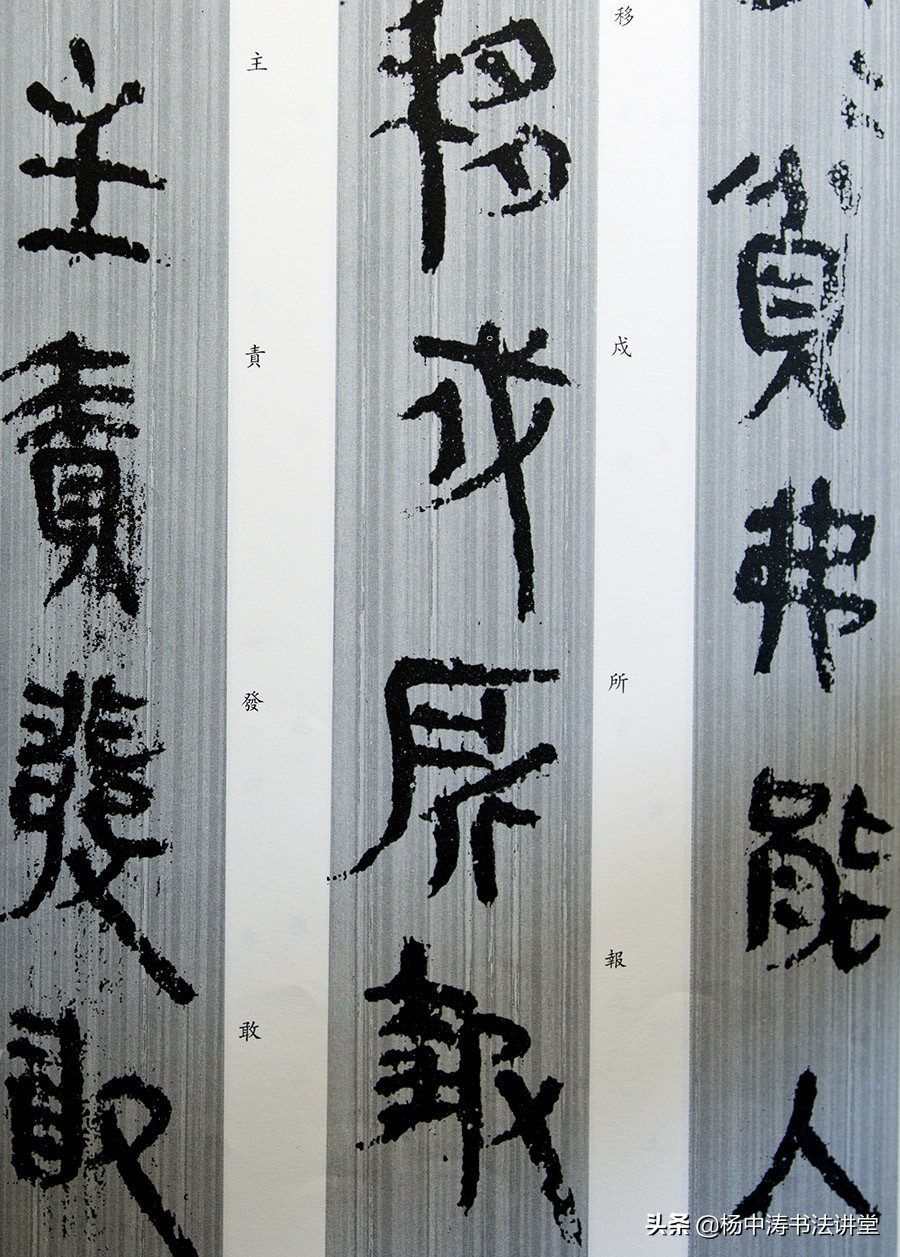 貧弗能入
移戍所報
移戍所報
主責發敢
主責發敢
头条 @杨中涛书法讲堂